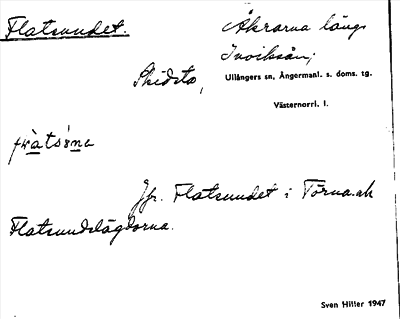 Flatsundet.
Åkrarna längs
Inviksån;
Skidsta,
Ullångers sn, Ångermanl. s. doms. tg.
Västernorrl. l.
Jfr. Flatsundet i Törna.ch
Flatsundslägdorna.
Sven Hiller 1947